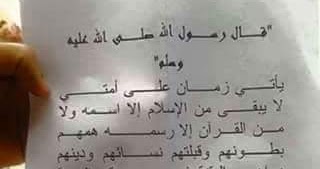 "قال رسول الله صلى الله عليه
وسلم"
يأتي زمان على أمتي
لا يبقى من الإسلام إلا اسمه ولا
من القرآن إلا رسمه همهم
بطونهم وقبلتهم نسائهم ودينهم